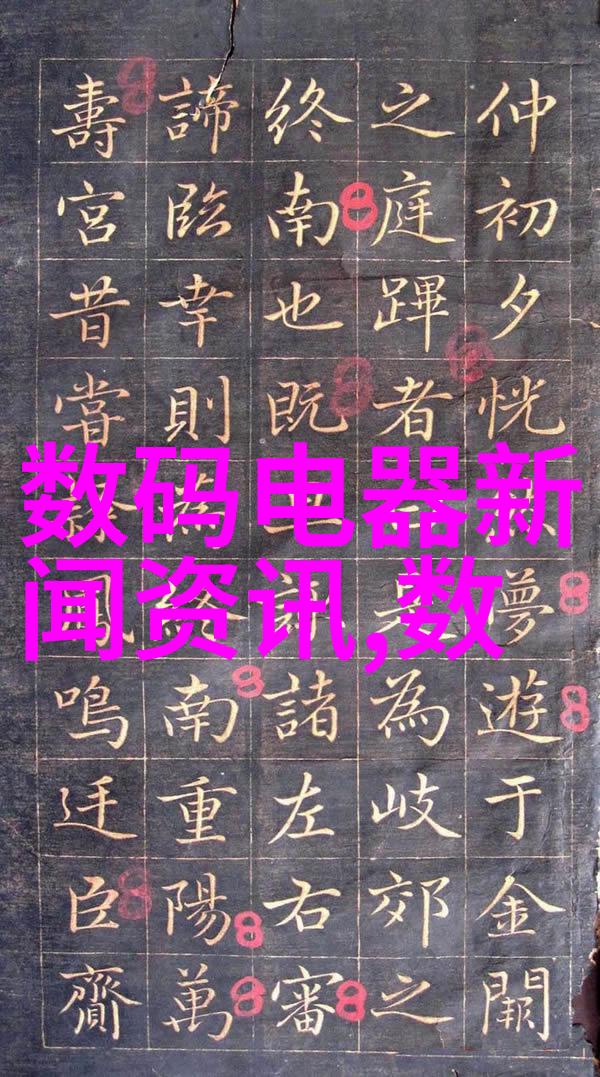 仲初夕恍夢遊于金闕
之庭蹕者是為岐郊之
終南也既諸左右審
諦臨幸則終南重陽萬
壽宮昔嘗鳳鳴迁臣齎
数码电器新
闻资讯,数